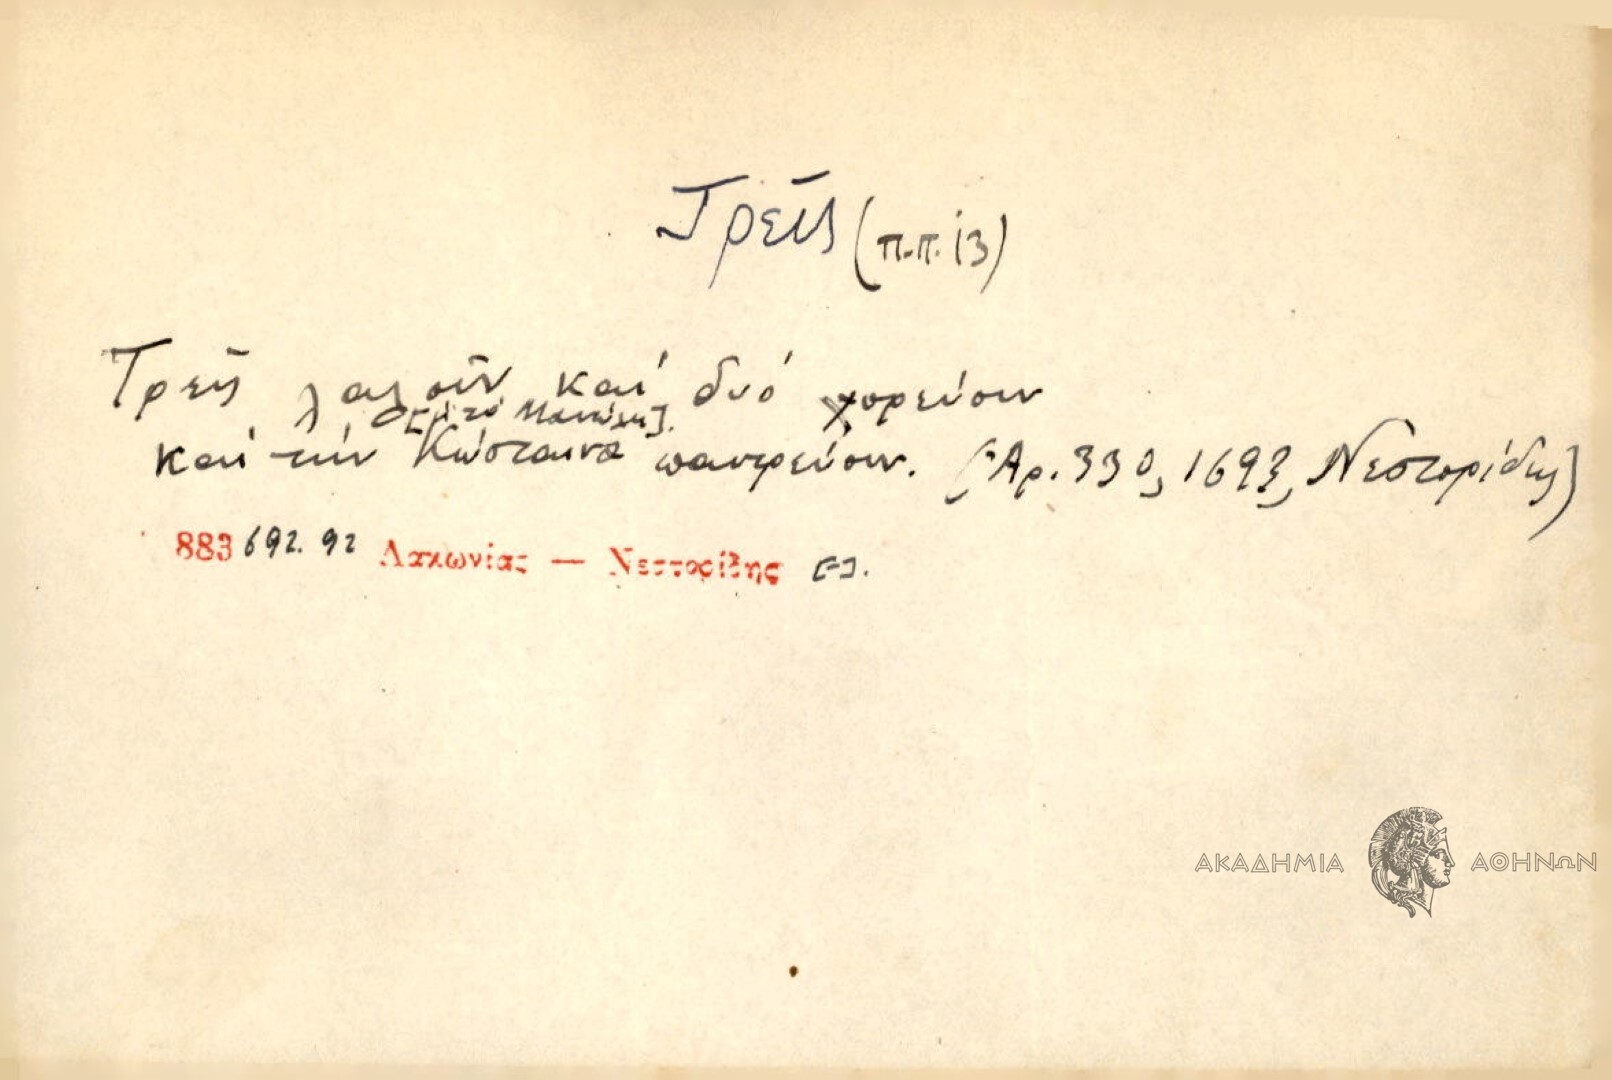 Τρεῖς (π.π. 13)
Τρεῖς λαλοῦν καὶ δυό χορεύουν
[ἢ τό Μανώλη].
καὶ τὴν Κώσταινα παντρεύουν. (Ἀρ. 330, 1693, Νεστορίδης)
883 692. 92 Λακωνίας — Νεστορίδης [-].
ΑΚΑΔΗΜΙΑ ΑΘΗΝΩΝ